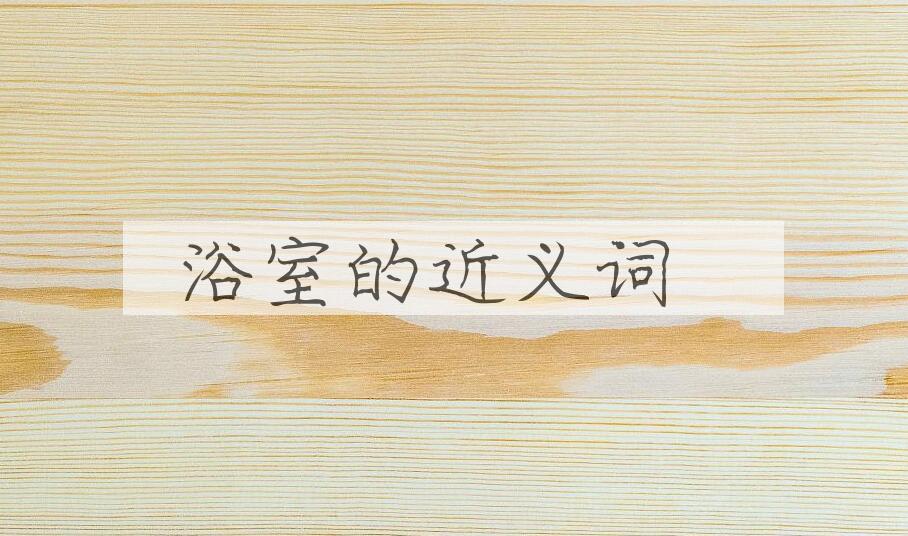 浴室的近义词